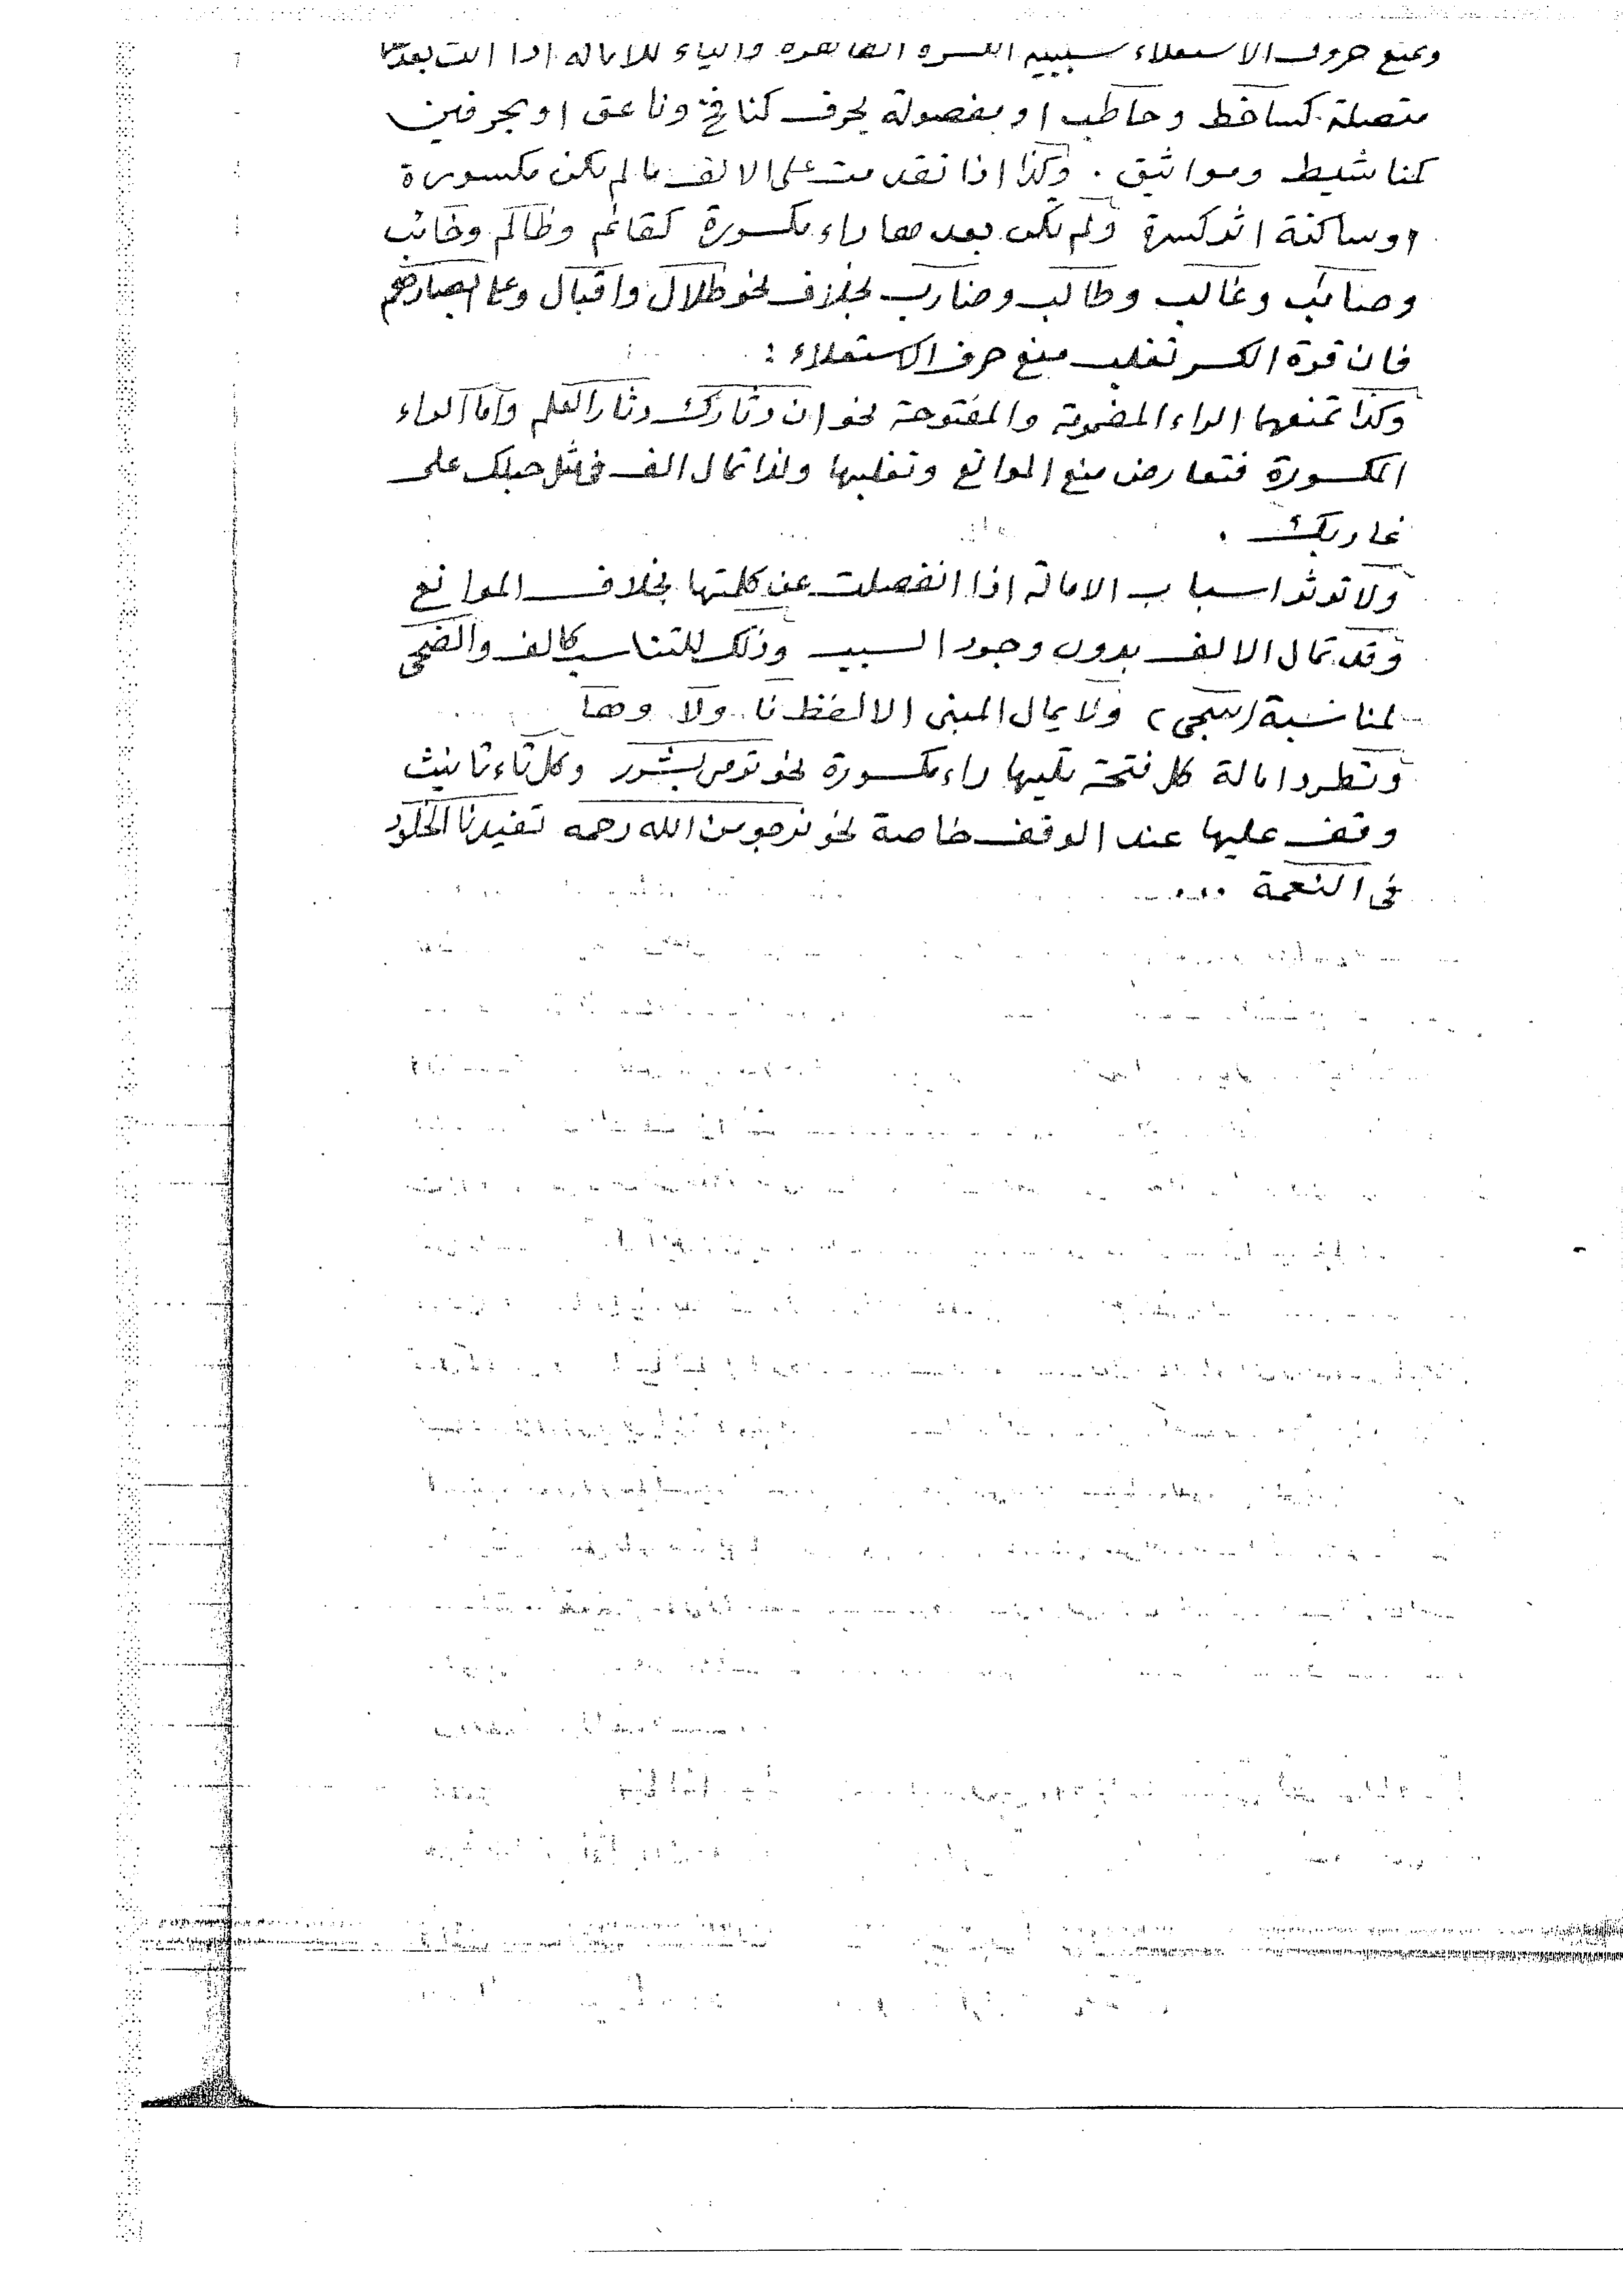 وتمنع حروف الاستعلاء سببية الكسرة الظاهرة والياء للامالة اذا اتت بعدها
متصلة كساخط وحاطب او مفصولة بحرف كنافخ وناعق او بحرفين
كمناشيط ومواثيق . وكذا اذا تقدمت على الالف ما لم تكن مكسورة
او ساكنة اثر كسرة ولم تكن بعدها راء مكسورة كقائم وظالم وخائب
وصائب وغالب وطالب وضارب بخلاف نحو طلال واقبال وعلى ابصارهم
فان قوة الكسر تغلب منع حرف الاستعلاء :
وكذا تمنعها الراء المضمومة والمفتوحة نحو ان دثارك دثار العلم واما الراء
المكسورة فتعارض منع الموانع وتغلبها ولذا تمال الف فى مثل حبلك على
غاربك .
ولا تؤثر اسباب الامالة اذا انفصلت عن كلمتها بخلاف الموانع
وقد تمال الالف بدون وجود السبب وذلك للتناسب كالف والضحى
لمناسبة (سجى) ولا يمال المبنى الا لفظ نا ولا وها
وتطرد امالة كل فتحة تليها راء مكسورة نحو ترمى بشرر وكل تاء تانيث
وقف عليها عند الوقف خاصة نحو نرجو من الله رحمه تفيدنا الخلود
فى النعمة ....